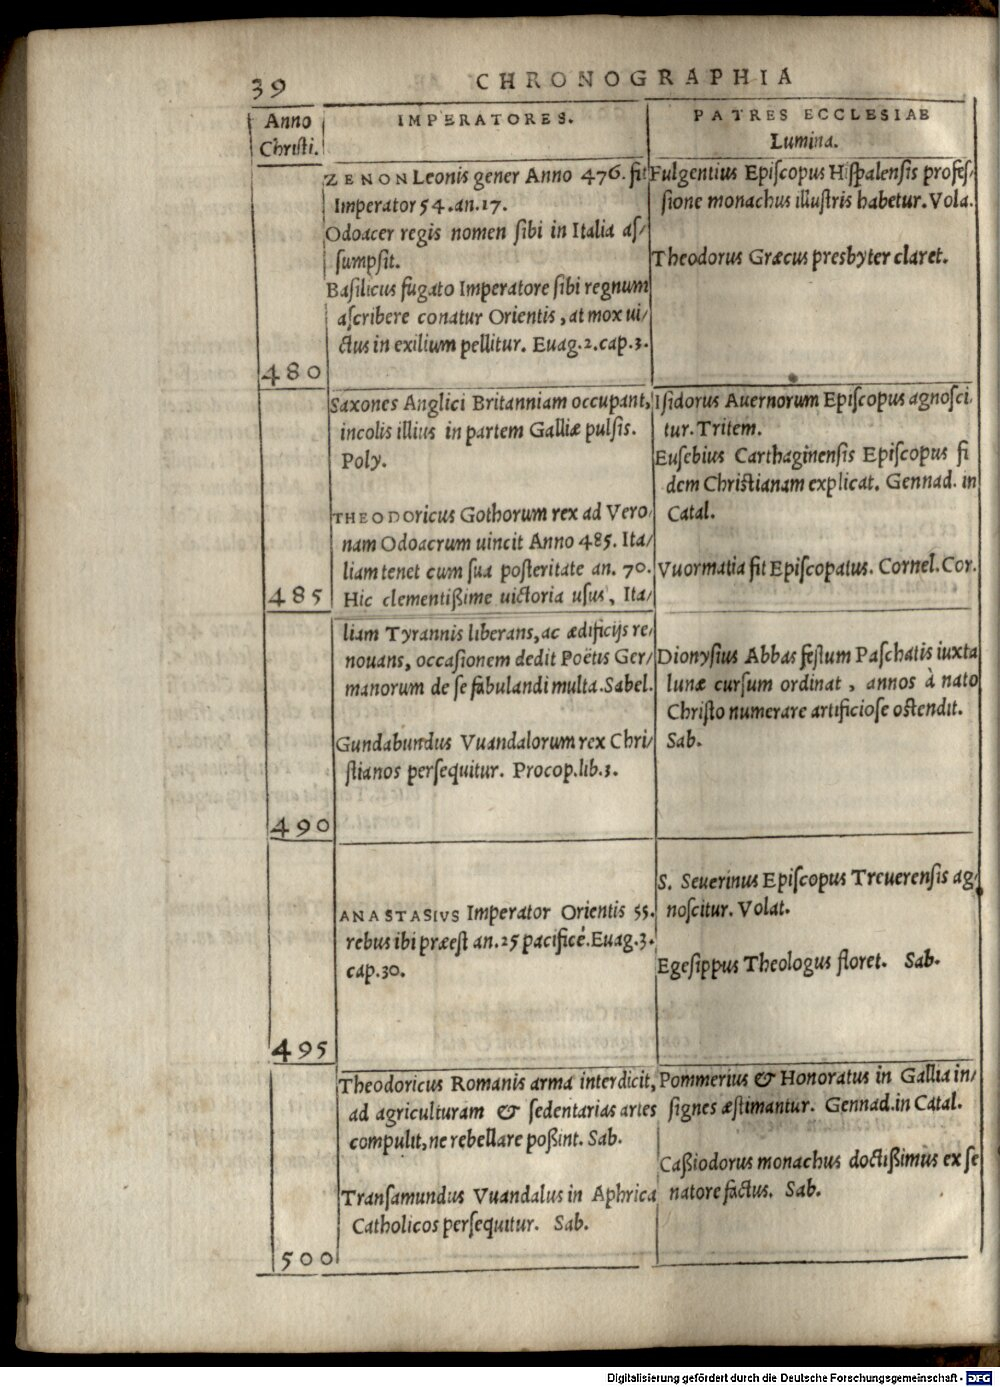 39
CHRONOGRAPHIA
Anno
Christi.
IMPERATORES.
PATRES ECCLESIAE
Lumina.
ZENON Leonis gener Anno 476. fit
Imperator 54. an. 17.
Odoacer regis nomen sibi in Italia as/
sumpsit.
Basilicus fugato Imperatore sibi regnum
ascribere conatur Orientis, at mox ui/
ctus in exilium pellitur. Euag. 2. cap. 3.
Fulgentius Episcopus Hispalensis profes/
sione monachus illustris habetur. Vola.
Theodorus Græcus presbyter claret.
480
Saxones Anglici Britanniam occupant,
incolis illius in partem Galliæ pulsis.
Poly.
THEODORicus Gothorum rex ad Vero/
nam Odoacrum uincit Anno 485. Ita/
liam tenet cum sua posteritate an. 70.
Hic clementißime uictoria usus, Ita/
Isidorus Auernorum Episcopus agnosci
tur. Tritem.
Eusebius Carthaginensis Episcopus fi
dem Christianam explicat. Gennad. in
Catal.
Vuormatia fit Episcopatus. Cornel. Cor.
485
liam Tyrannis liberans, ac ædificijs re/
nouans, occasionem dedit Poëtis Ger/
manorum de se fabulandi multa. Sabel.
Gundabundus Vuandalorum rex Chri/
stianos persequitur. Procop. lib. 3.
Dionysius Abbas festum Paschatis iuxta
lunæ cursum ordinat, annos à nato
Christo numerare artificiose ostendit.
Sab.
490
ANASTASIVS Imperator Orientis 55.
rebus ibi præest an. 25 pacificé. Euag. 3.
cap. 30.
S. Seuerinus Episcopus Treuerensis ag/
noscitur. Volat.
Egesippus Theologus floret. Sab.
495
Theodoricus Romanis arma interdicit,
ad agriculturam & sedentarias artes
compulit, ne rebellare poßint. Sab.
Transamundus Vuandalus in Aphrica
Catholicos persequitur. Sab.
Pommerius & Honoratus in Gallia in/
signes æstimantur. Gennad. in Catal.
Caßiodorus monachus doctißimus ex se
natore factus. Sab.
500
Digitalisierung gefördert durch die Deutsche Forschungsgemeinschaft - DFG